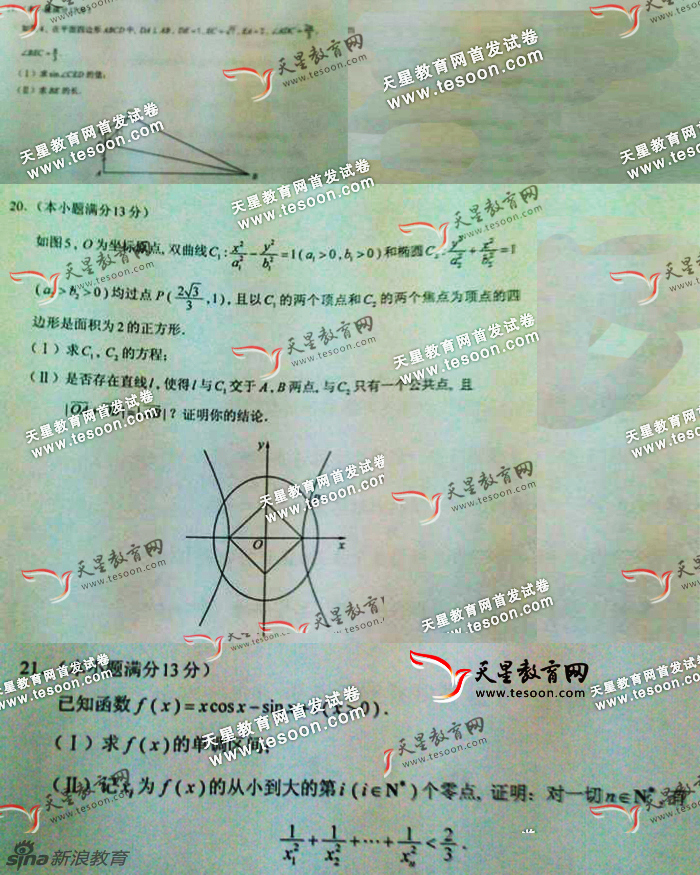 在平面四边形ABCD中, DA⊥AB, DE=1, EC=√7, EA=2, ∠ADC=
∠BEC=π/3
(Ⅰ)求sin∠CED的值;
(Ⅱ)求BE的长.
A B
20. (本小题满分13分)
如图5, O为坐标原点, 双曲线C₁: x²/a₁² - y²/b₁² =1(a₁>0, b₁>0)和椭圆C₂: y²/a₂² + x²/b₂² =1
(a₂>b₂>0)均过点P(2√3/3, 1), 且以C₁的两个顶点和C₂的两个焦点为顶点的四
边形是面积为2的正方形.
(Ⅰ)求C₁, C₂的方程;
(Ⅱ)是否存在直线l, 使得l与C₁交于A, B两点, 与C₂只有一个公共点, 且
|? 证明你的结论.
y
O x
21. 题满分13分)
已知函数f(x)=xcosx-sin x>0).
(Ⅰ)求f(x)的单调区间;
(Ⅱ)记xᵢ为f(x)的从小到大的第i(i∈N*)个零点, 证明: 对一切n∈N*, 有
1/x₁² + 1/x₂² + ⋯ + 1/xₙ² < 2/3 .
天星教育网
www.tesoon.com
天星教育网首发试卷
www.tesoon.com
sina新浪教育